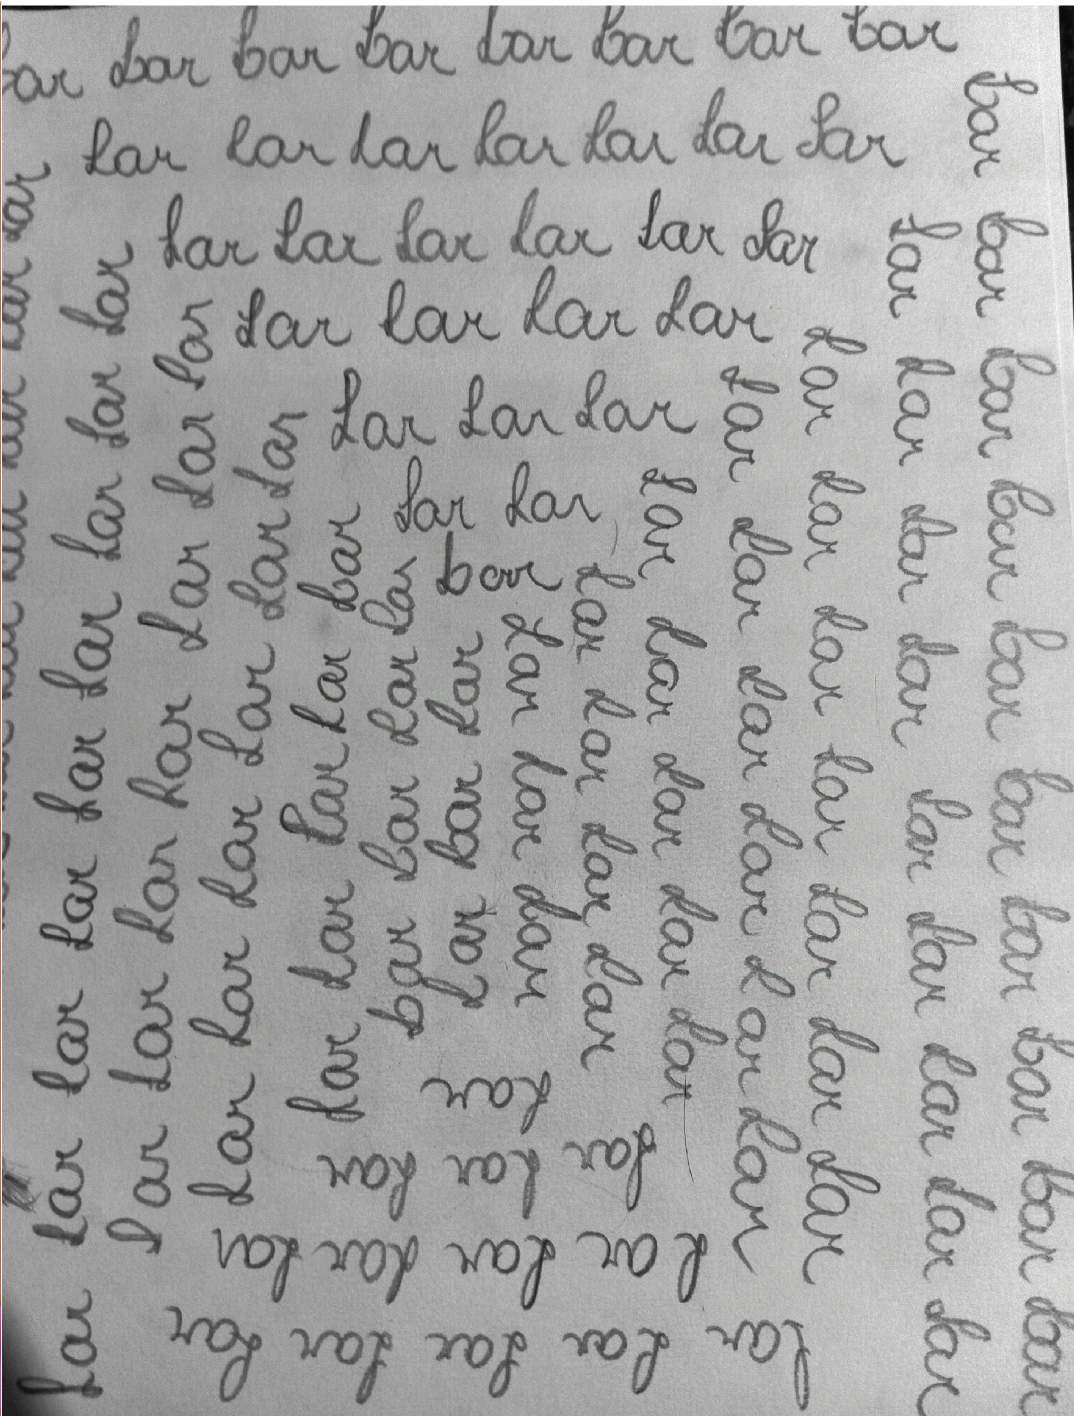 bar bar bar bar bar bar bar
lar lar lar lar lar lar lar
lar lar lar lar lar lar
lar lar lar lar
lar lar lar
lar lar
bar
bar bar bar bar bar bar bar bar bar bar
lar lar lar lar lar lar lar lar lar
lar lar lar lar lar lar lar
lar lar lar lar lar lar
lar lar lar lar lar
lar lar lar lar
lar lar lar
lar
lar lar lar
lar lar lar lar
lar lar lar lar lar
lar bar lar
bar bar lar lar
lar lar lar lar bar
lar lar lar lar lar lar
lar lar lar lar lar lar lar
lar lar lar lar lar lar lar lar lar
lar